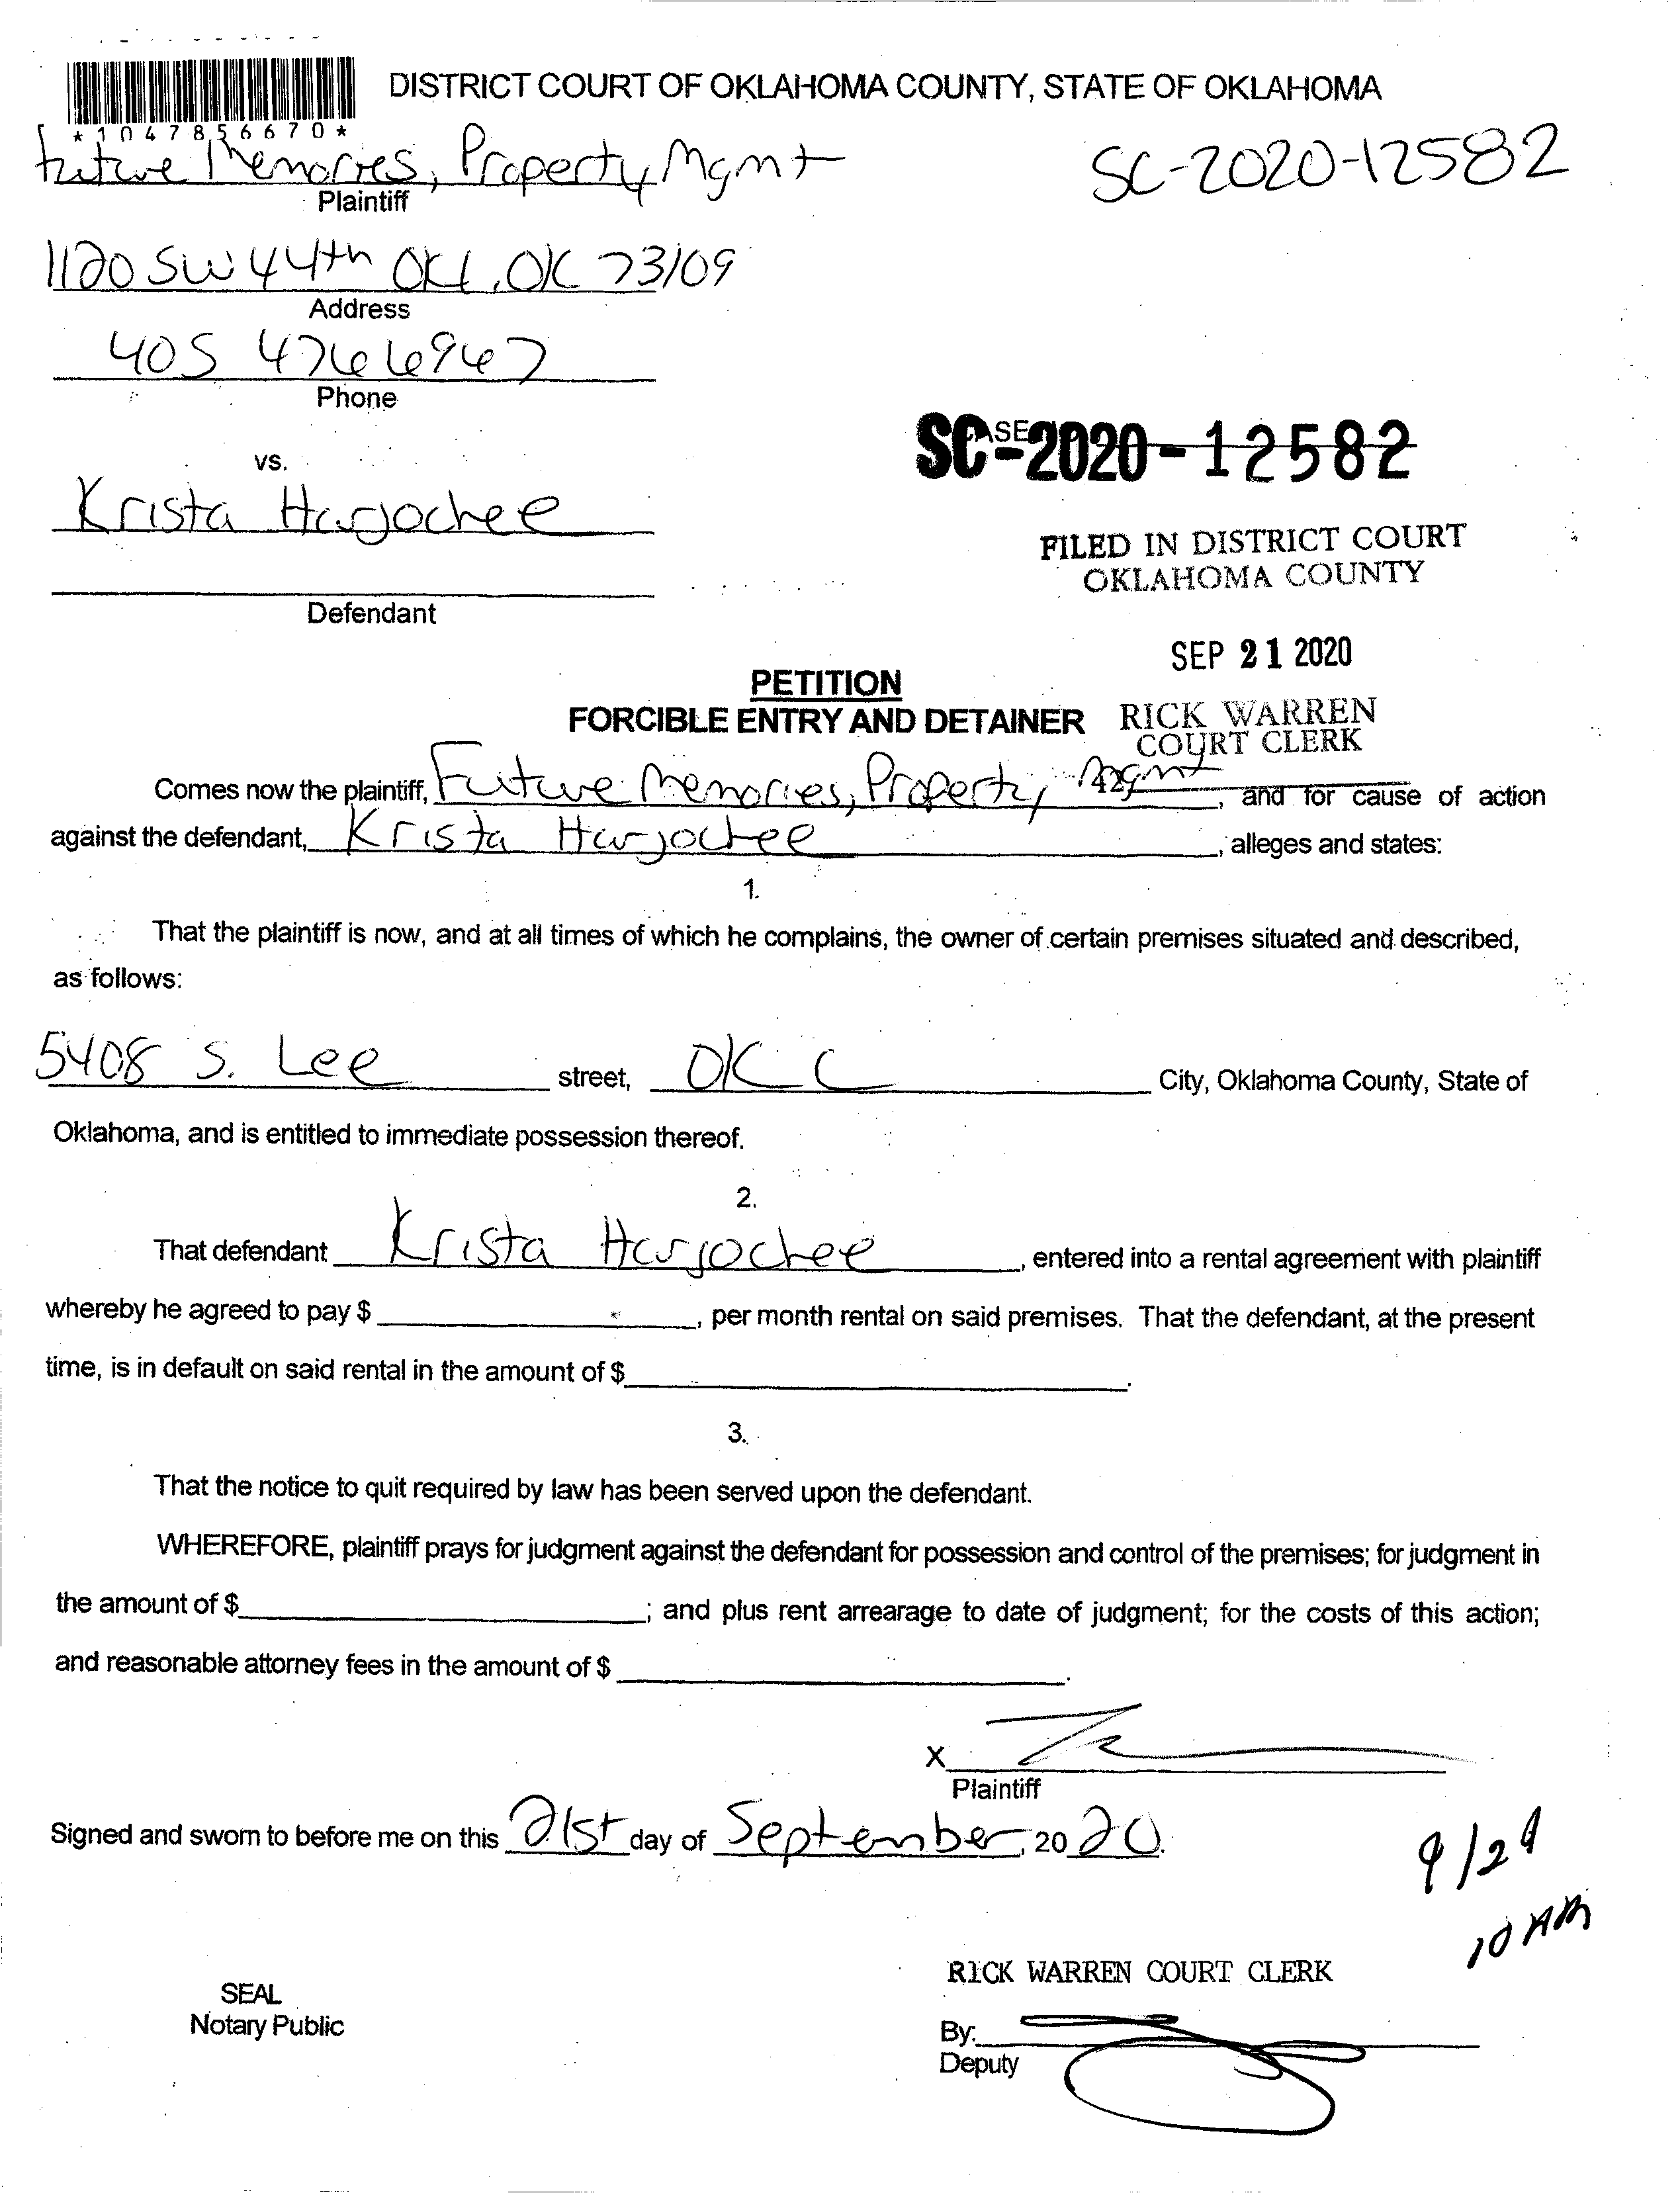 DISTRICT COURT OF OKLAHOMA COUNTY, STATE OF OKLAHOMA
*1047856670*
Future Memories, Property Mgmt
SC-2020-12582
Plaintiff
1120 SW 44th OKC, OK 73109
Address
405 476 6967
Phone
SC-2020-12582
vs.
Krista Harjochee
FILED IN DISTRICT COURT
OKLAHOMA COUNTY
Defendant
SEP 21 2020
PETITION
FORCIBLE ENTRY AND DETAINER
RICK WARREN
COURT CLERK
Comes now the plaintiff, Future Memories, Property Mgmt, and for cause of action
against the defendant, Krista Harjochee, alleges and states:
1.
That the plaintiff is now, and at all times of which he complains, the owner of certain premises situated and described,
as follows:
5408 S. Lee street, OKC City, Oklahoma County, State of
Oklahoma, and is entitled to immediate possession thereof.
2.
That defendant Krista Harjochee, entered into a rental agreement with plaintiff
whereby he agreed to pay $, per month rental on said premises. That the defendant, at the present
time, is in default on said rental in the amount of $.
3.
That the notice to quit required by law has been served upon the defendant.
WHEREFORE, plaintiff prays for judgment against the defendant for possession and control of the premises; for judgment in
the amount of $; and plus rent arrearage to date of judgment; for the costs of this action;
and reasonable attorney fees in the amount of $.
X
Plaintiff
Signed and sworn to before me on this 21st day of September, 2020.
9/29
10 AM
RICK WARREN COURT CLERK
SEAL
Notary Public
By:
Deputy